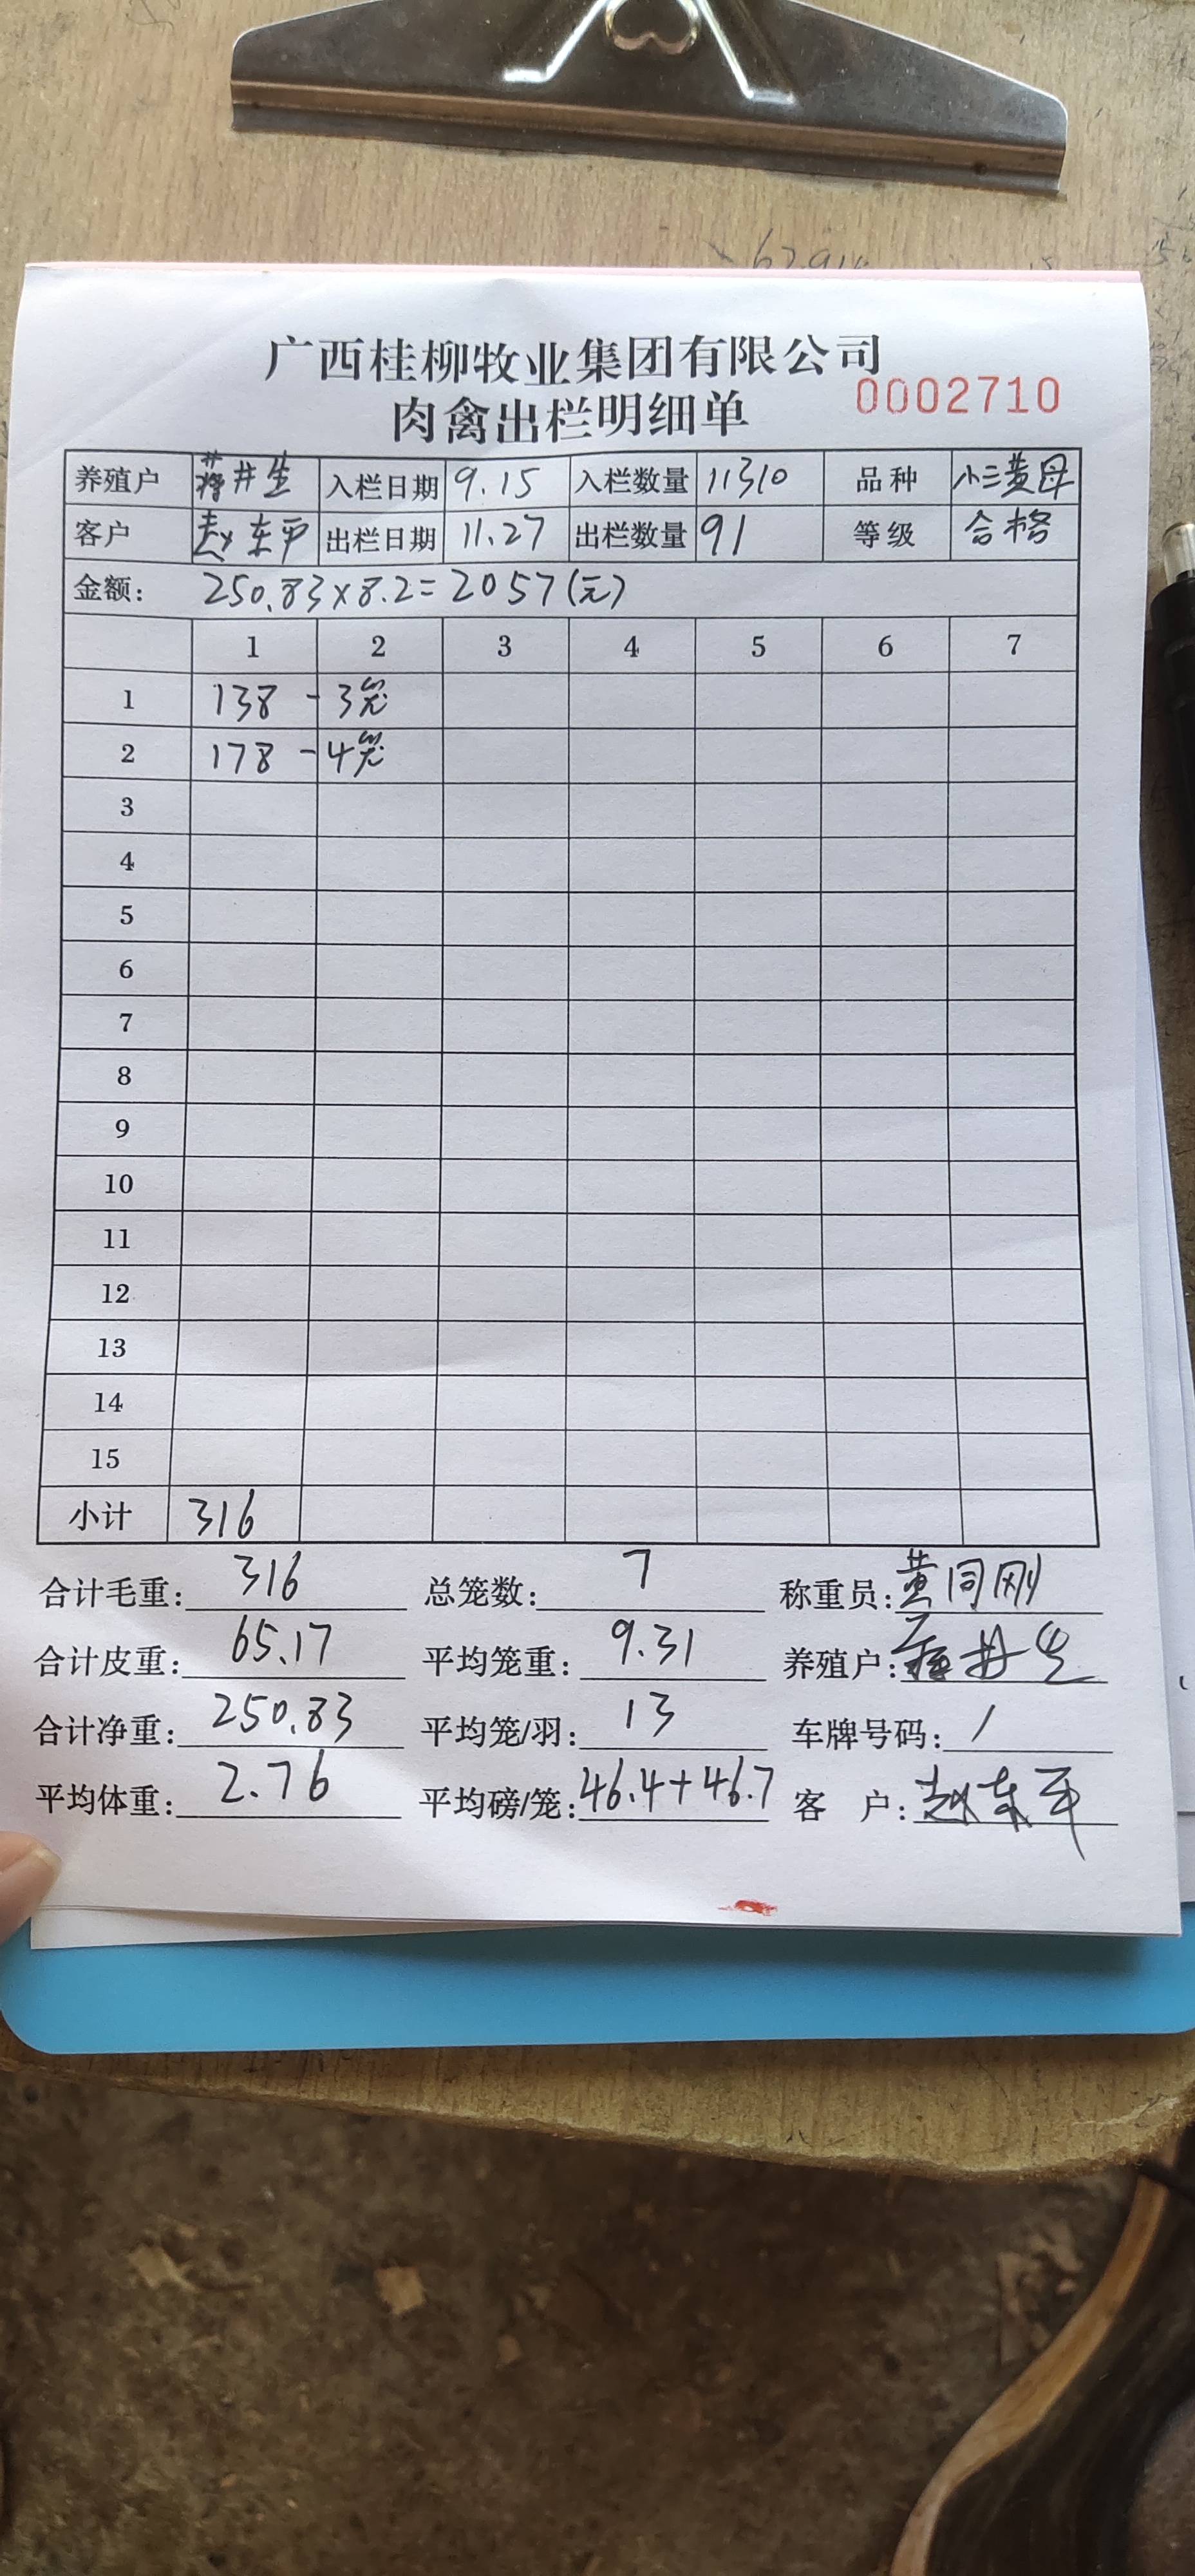 广西桂柳牧业集团有限公司
肉禽出栏明细单 0002710
养殖户 蒋井生 入栏日期 9.15 入栏数量 11310 品种 小三黄母
客户 赵东平 出栏日期 11.27 出栏数量 91 等级 合格
金额: 250.83×8.2=2057(元)
1 2 3 4 5 6 7
1 138 - 3笼
2 178 - 4笼
3
4
5
6
7
8
9
10
11
12
13
14
15
小计 316
合计毛重: 316 总笼数: 7 称重员: 黄同刚
合计皮重: 65.17 平均笼重: 9.31 养殖户: 蒋井生
合计净重: 250.83 平均笼/羽: 13 车牌号码: /
平均体重: 2.76 平均磅/笼: 46.4+46.7 客 户: 赵东平